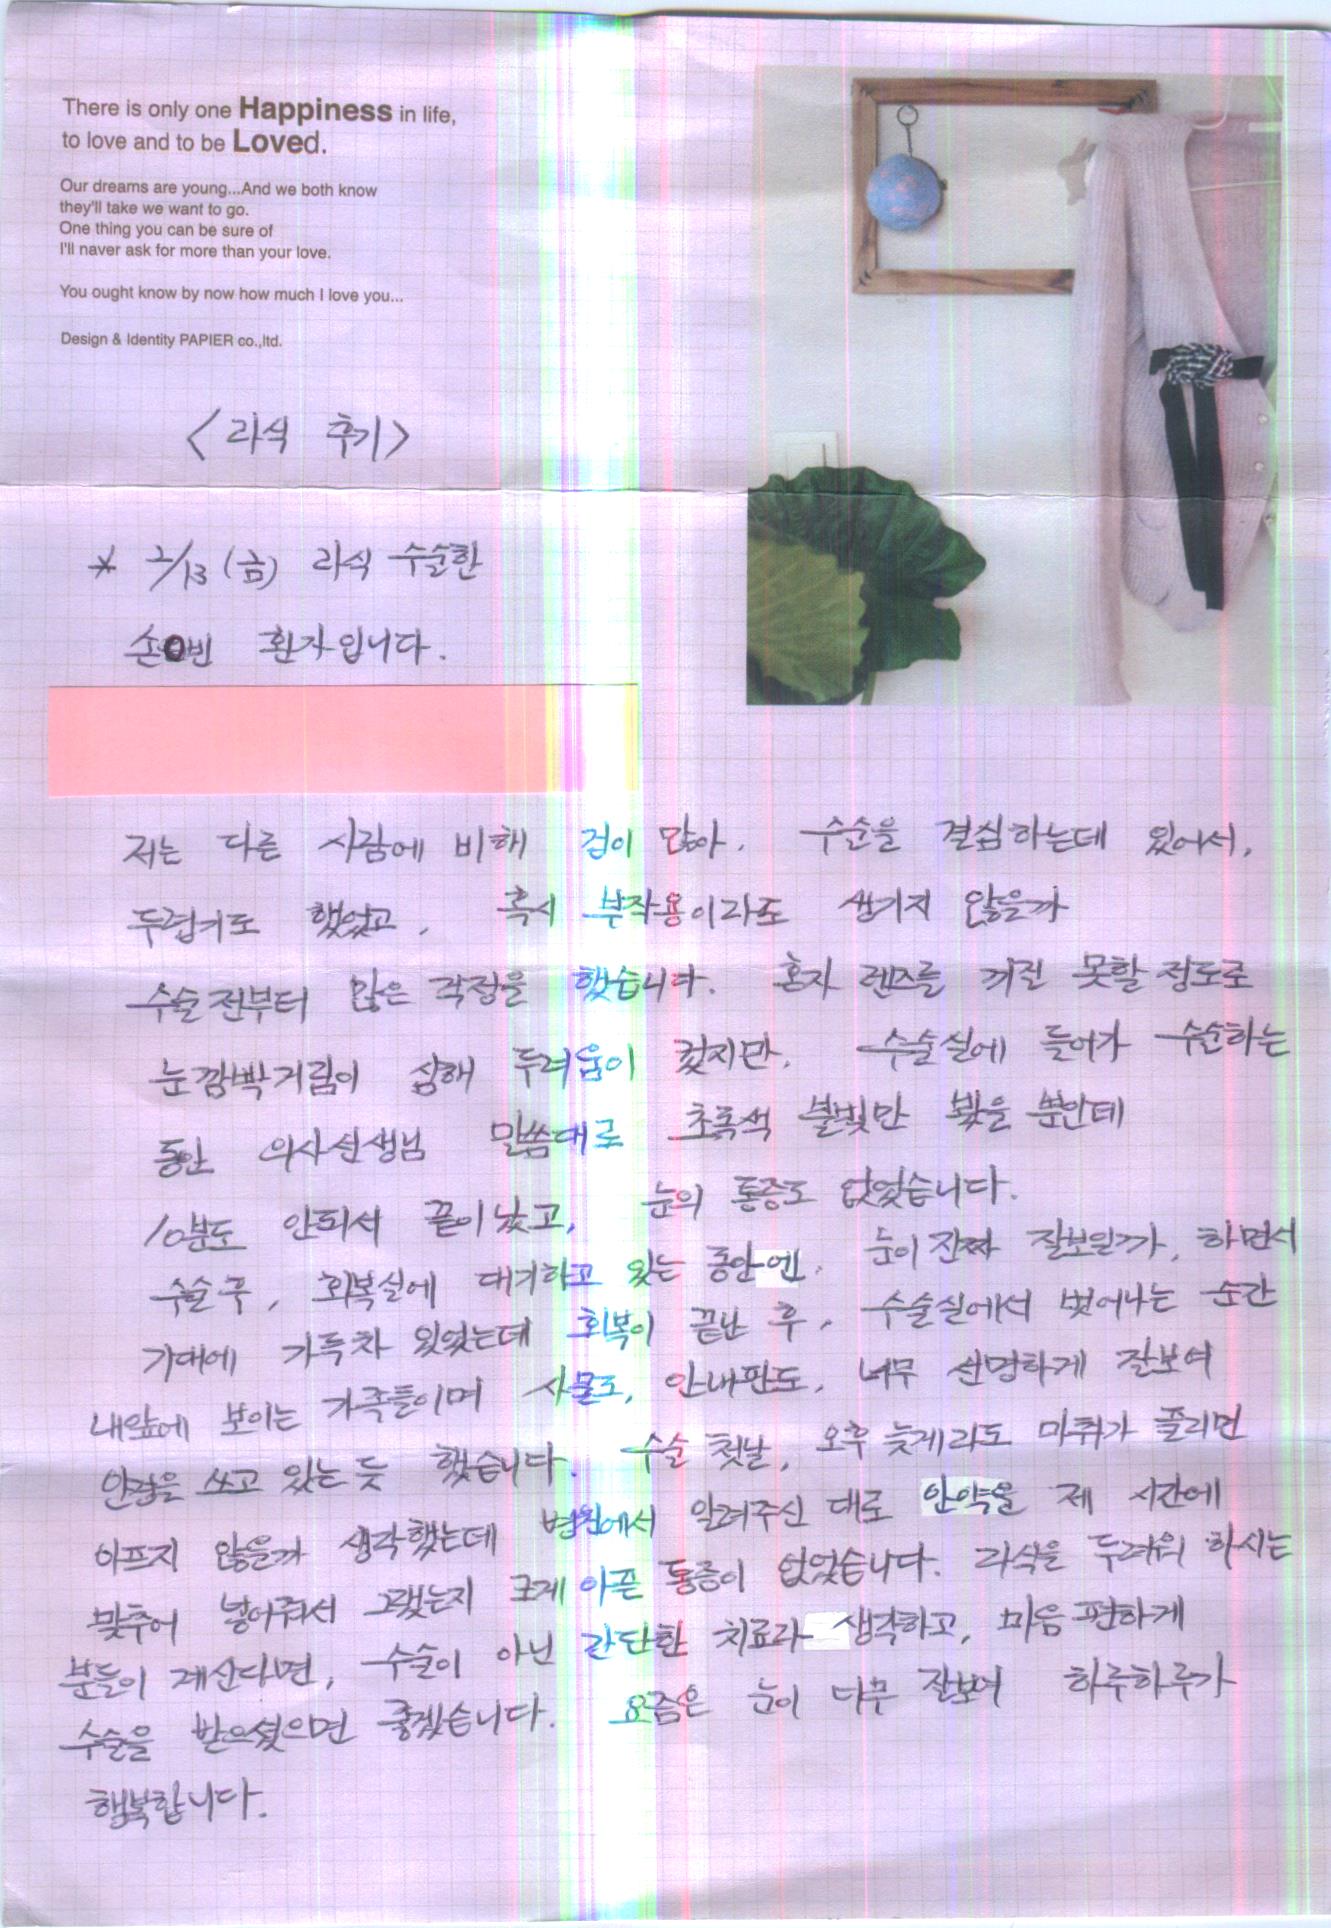 There is only one Happiness in life,
to love and to be Loved.
Our dreams are young...And we both know
they'll take we want to go.
One thing you can be sure of
I'll naver ask for more than your love.
You ought know by now how much I love you...
Design & Identity PAPIER co.,ltd.
<라식 후기>
* 2/13 (금) 라식 수술한
손O빈 환자입니다.
저는 다른 사람에 비해 겁이 많아. 수술을 결심하는데 있어서,
두렵기도 했었고, 혹시 부작용이라도 생기지 않을까
수술전부터 많은 걱정을 했습니다. 혼자 렌즈를 끼질 못할 정도로
눈깜박거림이 심해 두려움이 컸지만, 수술실에 들어가 수술하는
동안 의사선생님 말씀대로 초록색 불빛만 봤을 뿐인데
10분도 안되서 끝이났고, 눈의 통증도 없었습니다.
수술후, 회복실에 대기하고 있는 동안엔, 눈이 진짜 잘보일까, 하면서
기대에 가득차 있었는데 회복이 끝난 후, 수술실에서 벗어나는 순간
내앞에 보이는 가족들이며 사물도, 안내판도, 너무 선명하게 잘보여
안경을 쓰고 있는듯 했습니다. 수술 첫날, 오후 늦게라도 마취가 풀리면
아프지 않을까 생각했는데 병원에서 알려주신 대로 안약을 제 시간에
맞추어 넣어줘서 그랬는지 크게 아픈 통증이 없었습니다. 라식을 두려워 하시는
분들이 계신다면, 수술이 아닌 간단한 치료라 생각하고, 마음 편하게
수술을 받으셨으면 좋겠습니다. 요즘은 눈이 너무 잘보여 하루하루가
행복합니다.